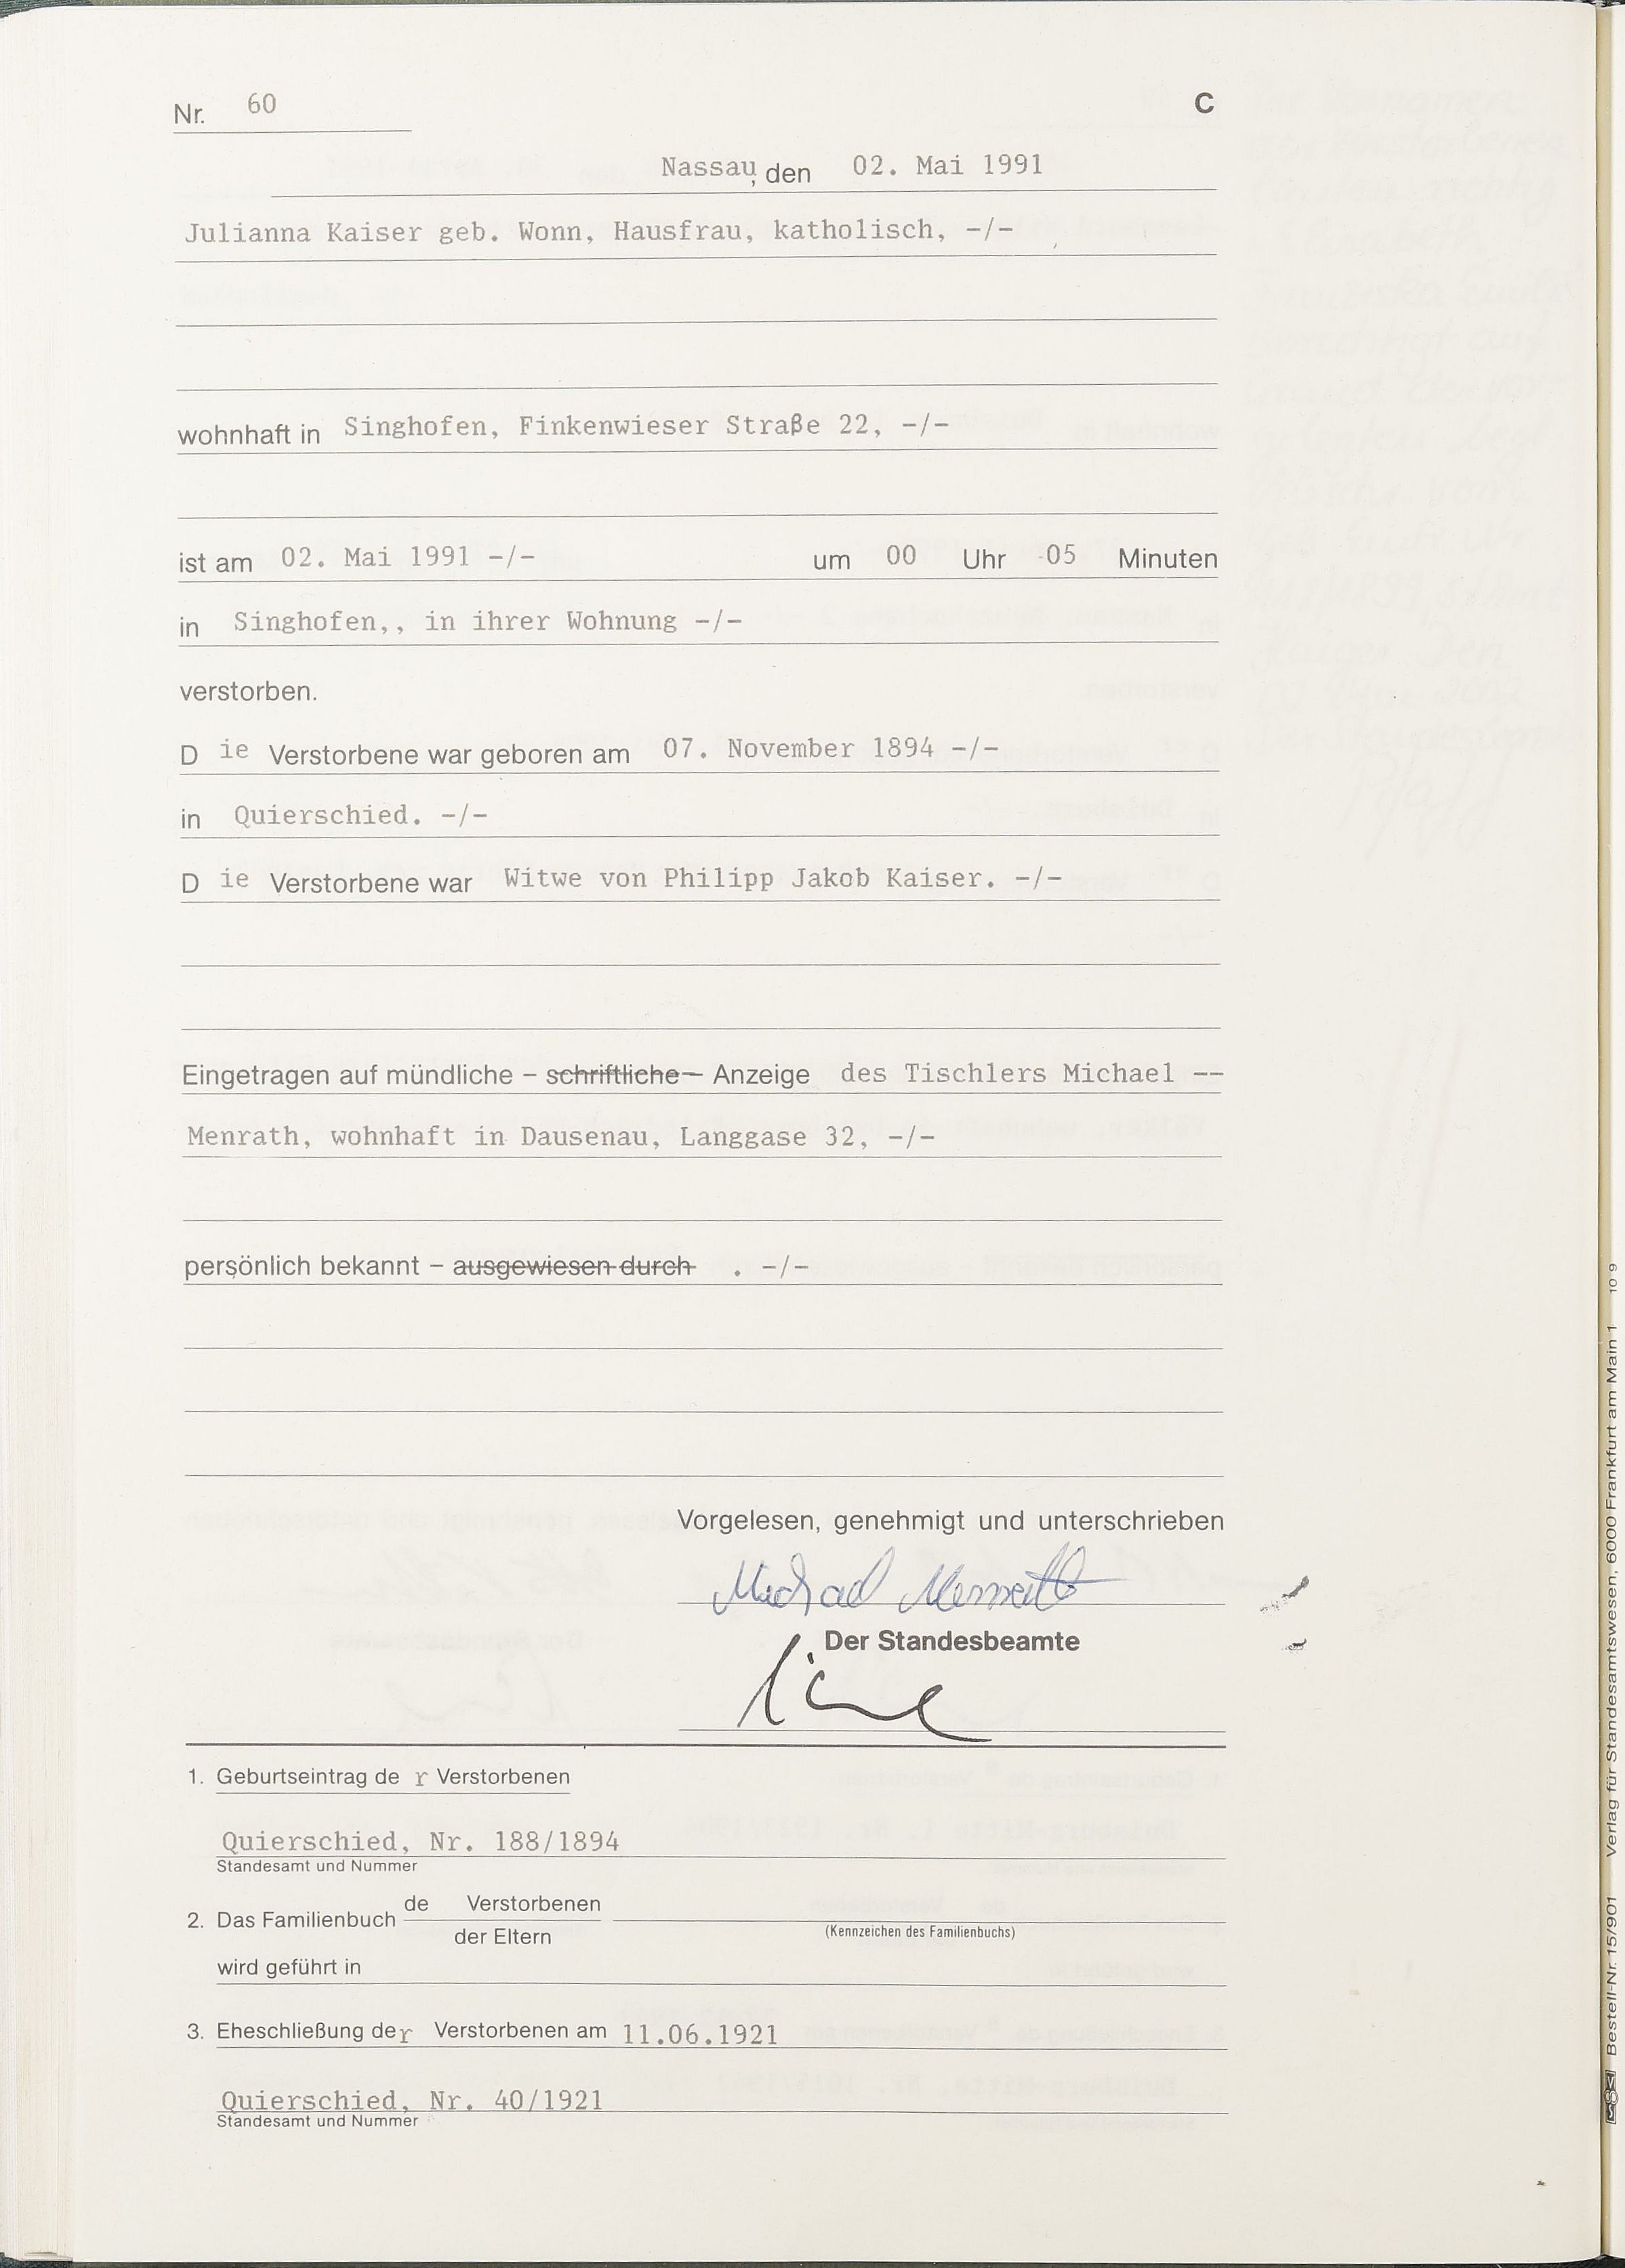 Nr. 60 C
Nassau, den 02. Mai 1991
Julianna Kaiser geb. Wonn, Hausfrau, katholisch, -/-
wohnhaft in Singhofen, Finkenwieser Straße 22, -/-
ist am 02. Mai 1991 -/- um 00 Uhr 05 Minuten
in Singhofen,, in ihrer Wohnung -/-
verstorben.
D ie Verstorbene war geboren am 07. November 1894 -/-
in Quierschied. -/-
D ie Verstorbene war Witwe von Philipp Jakob Kaiser. -/-
Eingetragen auf mündliche – schriftliche – Anzeige des Tischlers Michael --
Menrath, wohnhaft in Dausenau, Langgase 32, -/-
persönlich bekannt – ausgewiesen durch . -/-
Vorgelesen, genehmigt und unterschrieben
Michael Menrath
Der Standesbeamte
1. Geburtseintrag de r Verstorbenen
Quierschied, Nr. 188/1894
Standesamt und Nummer
2. Das Familienbuch de Verstorbenen
der Eltern
(Kennzeichen des Familienbuchs)
wird geführt in
3. Eheschließung der Verstorbenen am 11.06.1921
Quierschied, Nr. 40/1921
Standesamt und Nummer
Bestell-Nr. 15/901 Verlag für Standesamtswesen, 6000 Frankfurt am Main 1 10 9